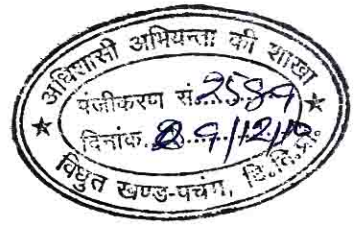 अधिशासी अभियन्ता की शाखा
पंजीकरण सं. 2589
दिनांक
विद्युत खण्ड-पचंम, दि.वि.प्रा.